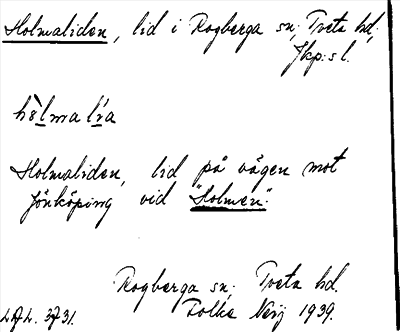 Holmaliden, lid i Rogberga sn, Tveta hd,
Jkp:s l.
hòlmalía
Holmaliden, lid på vägen mot
Jönköping vid "Holmen".
Rogberga sn, Tveta hd.
Folke 1939.